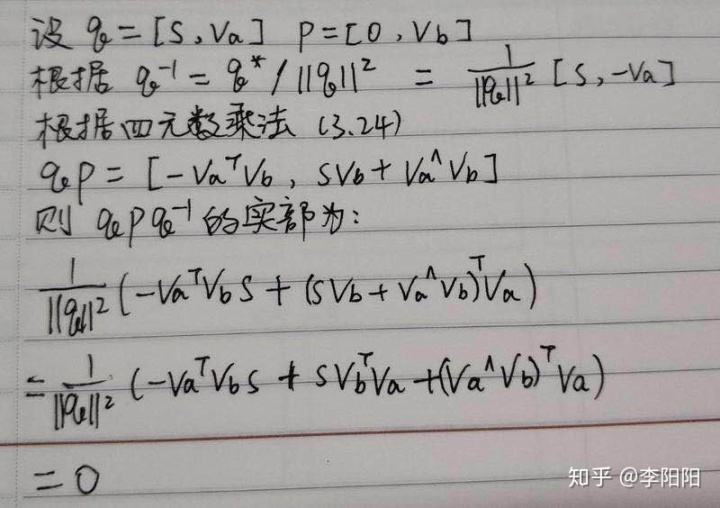 设 q = [s, va] p = [0, vb]
根据 q⁻¹ = q* / ||q||² = 1/||q||² [s, -va]
根据四元数乘法 (3.24)
qp = [-vaᵀvb, svb + va^vb]
则 qpq⁻¹ 的实部为:
1/||q||² (-vaᵀvbs + (svb + va^vb)ᵀva)
= 1/||q||² (-vaᵀvbs + svbᵀva + (va^vb)ᵀva)
= 0
知乎 @李阳阳